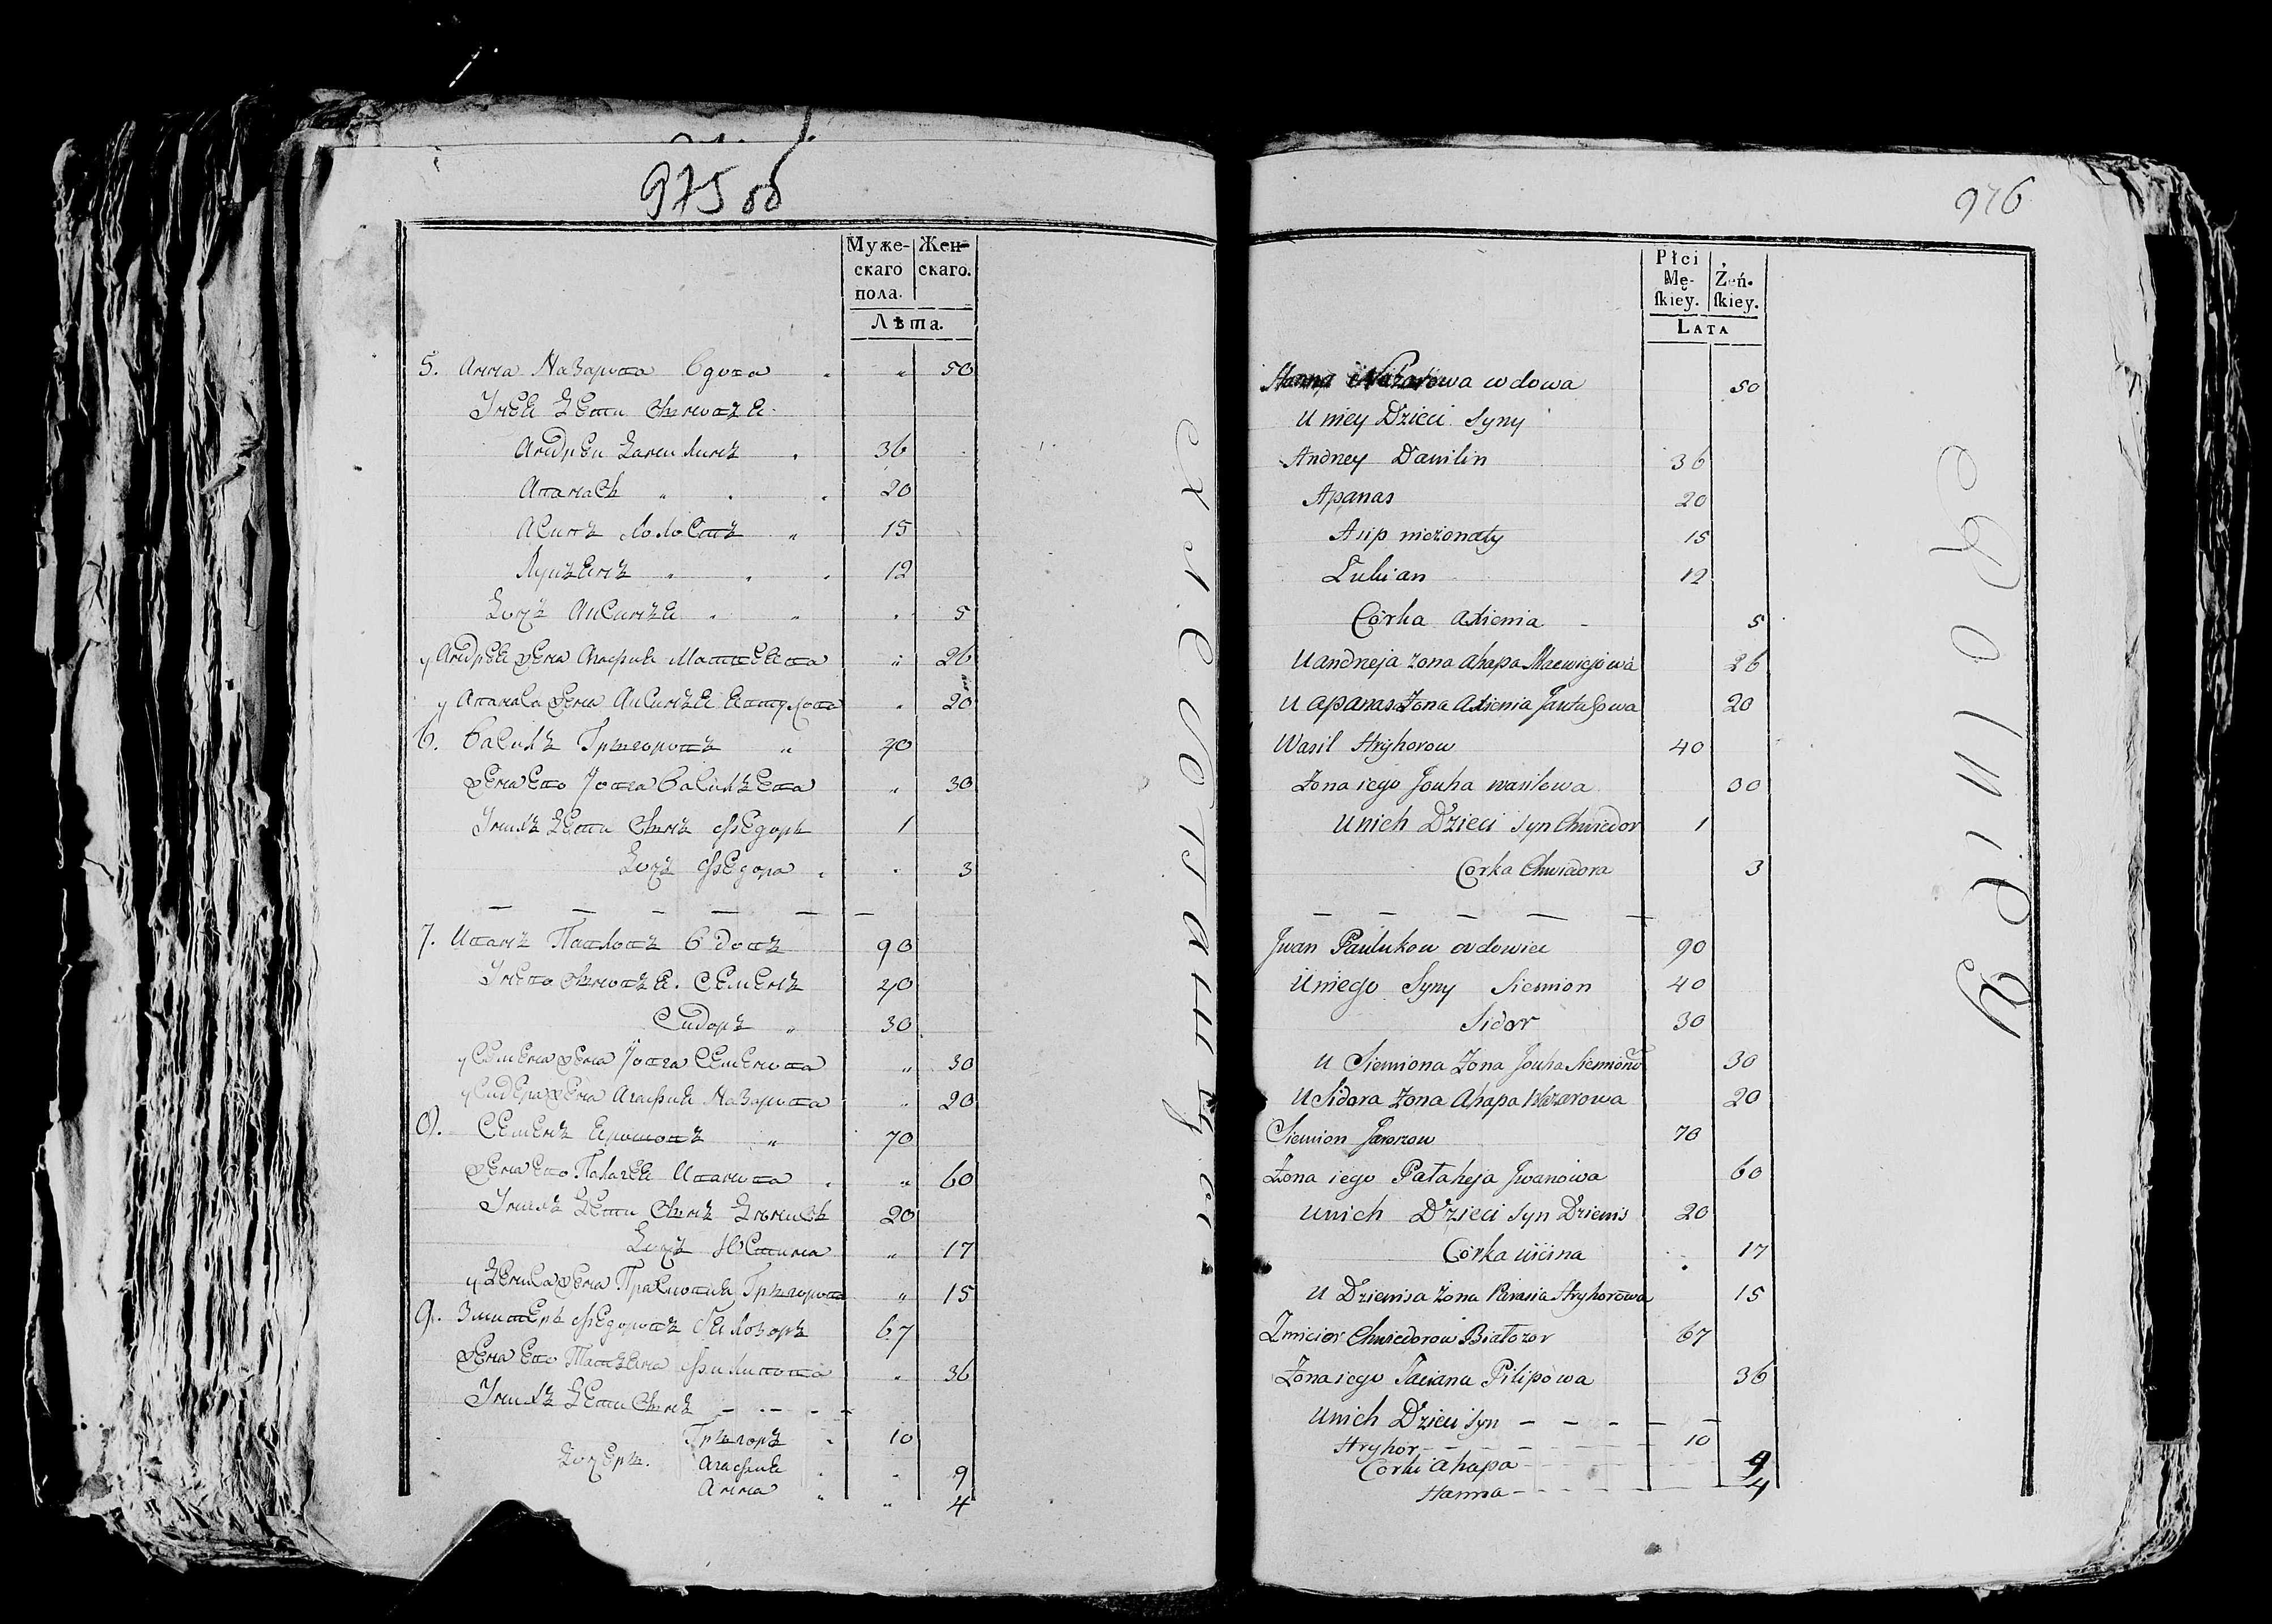 975 об
Муже- Жен-
скаго скаго.
пола.
Лѣта.
5. Анна Назарова вдова " 50
У нея дѣти сыновья
Андрей Данилинъ 36
Апанасъ " 20
Асипъ холостъ " 15
Луцьянъ " 12
Дочь Аксинья " 5
у Андрея жена Агафия Матвеева " 26
у Апанаса жена Аксинья Евтухова " 20
6. Василь Грыгоровъ " 40
жена ево Ховга Васильева " 30
У нихъ дѣти сынъ Федоръ 1
Дочь Федора " 3
7. Иванъ Павловъ вдовъ 90
У нево сыновья Семенъ 40
Сидоръ " 30
у Семена жена Семенова " 30
у Сидера жена Агафия Назарова " 20
8. Семенъ " 70
жена ево Палагея Иванова " 60
У нихъ дѣти сынъ Дѣнисъ 20
Дочь Юстина " 17
у Дениса жена Грыгорова " 15
9. Змитеръ Федоровъ Белозоръ 67
жена ево Татьяна Филипова " 36
У нихъ дѣти сынъ
Грыгоръ 10
Дочеры. Агафия " 9
Анна " 4
976
Płci
Mę- Żeń-
ſkiey. ſkiey.
LATA
Hanna Nazarowa wdowa 50
U niey Dzieci Syny
Andrey Danilin 36
Apanas 20
Asip nieżonaty 15
Łukian 12
Córka Axienia 5
U andreja żona ahapa Macwiejowa 26
U apanasa Żona Axienia Jautuhowa 20
Wasil Hryhorow 40
Żona iego Jouha wasilowa 30
U nich Dzieci syn Chwiedor 1
Corka Chwiadora 3
Jwan Paulukow wdowiec 90
U niego Syny Siemion 40
Sidor 30
U Siemiona Żona Jouha Siemionow 30
U Sidora Żona Ahapa Nazarowa 20
Siemion 70
Żona iego Pałaheja Jwanowa 60
U nich Dzieci syn Dzienis 20
Córka uścina 17
U Dzienisa Żona Parasia Hryhorowa 15
Zmicier Chwiedorow Białozor 67
Żona iego Taciana Pilipowa 36
U nich Dzieci syn
Hryhor 10
Corki ahapa 9
Hanna 4